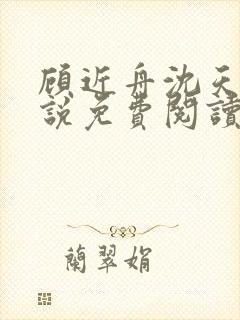 顾近舟沈天
説免費閱讀
蘭翠娟